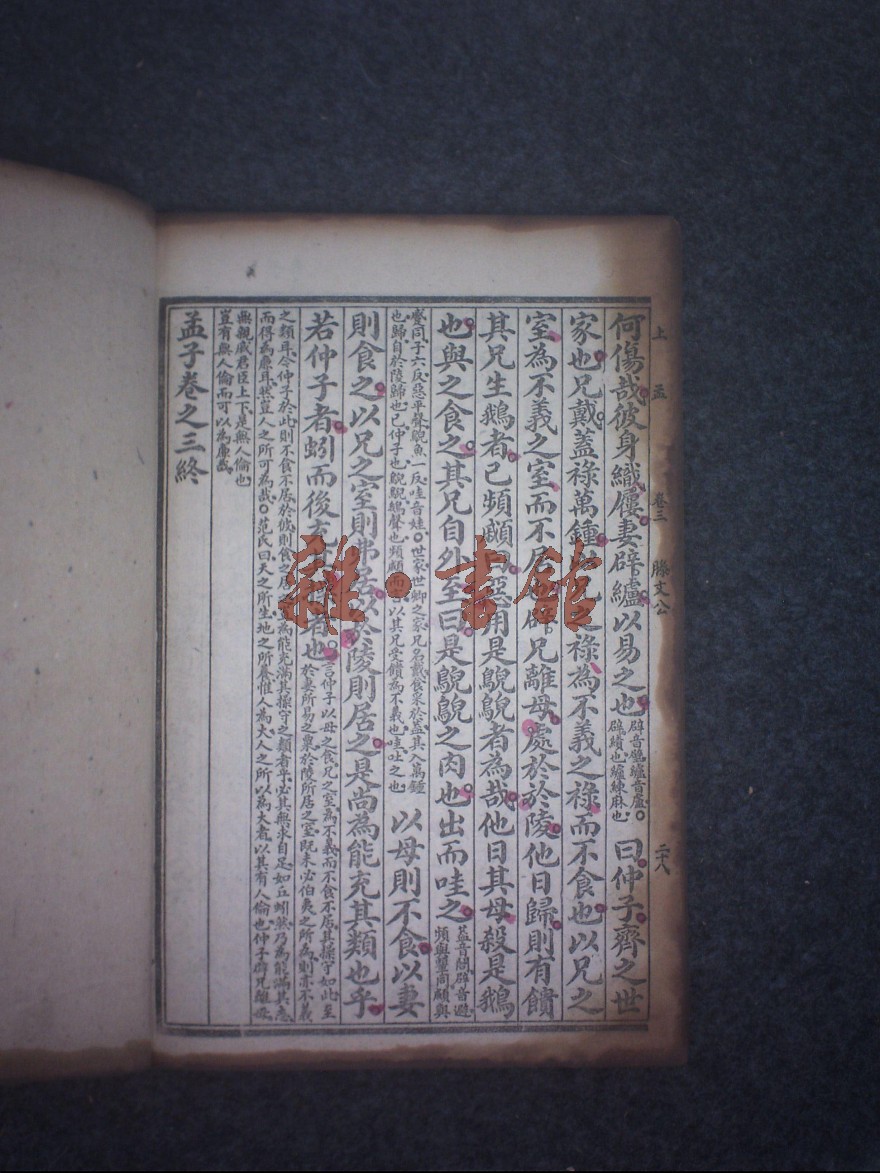 上孟 卷三 滕文公 二十八
何傷哉彼身織屨妻辟纑以易之也
辟音壁纑音盧。
辟績也纑練麻也
曰仲子齊之世
家也兄戴蓋祿萬鍾以兄之祿為不義之祿而不食也以兄之
室為不義之室而不居也辟兄離母處於於陵他日歸則有饋
其兄生鵝者己頻顣曰惡用是鶂鶂者為哉他日其母殺是鵝
也與之食之其兄自外至曰是鶂鶂之肉也出而哇之
蓋音閤辟音避
頻與顰同顣與
蹙同子六反惡平聲鶂魚一反哇音娃。世家世卿之家兄名戴食采於蓋其入萬鍾
也歸自於陵歸也己仲子也鶂鶂鵝聲也頻顣而言以其兄受饋為不義也哇吐之也
以母則不食以妻
則食之以兄之室則弗居以於陵則居之是尚為能充其類也乎
若仲子者蚓而後充其操者也
言仲子以母之食兄之室為不義而不食不居其操守如此至
於妻所易之粟於陵所居之室既未必伯夷之所為則亦不義
之類耳今仲子於此則不食不居於彼則食之居之豈為能充滿其操守之類者乎必其無求自足如丘蚓然乃為能滿其志
而得為廉耳然豈人之所可為哉。范氏曰天之所生地之所養惟人為大人之所以為大者以其有人倫也仲子避兄離母
無親戚君臣上下是無人倫也
豈有無人倫而可以為廉哉
孟子卷之三終
雜·書館